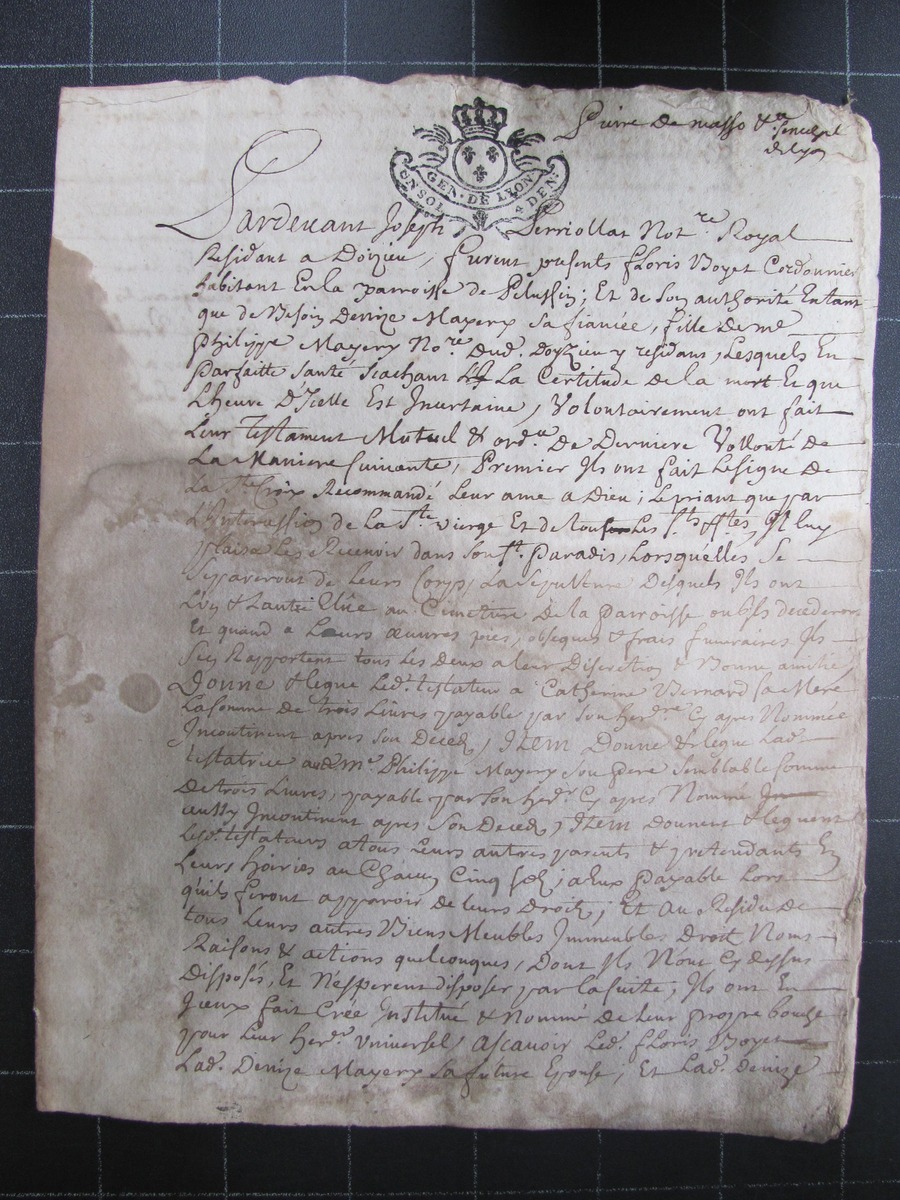 Pierre de masso &
de lyon
GEN · DE LYON
UN SOL 4 DEN.
Pardevant Joseph Perriollat Not.re Royal
Residant a Doizieu, furent presents Floris Boyet Cordonnier
habitant En la parroisse de Pelussin; Et de Son authorité En tant
que de Besoin Denize Mayery sa fiancée, fille de me
philippe Mayery No.re Dud. Doyzieu y residant, Lesquels En
parfaitte Santé Scachant La Certitude de la mort Et que
Lheure D'Icelle Est Incertaine, Volontairement ont fait
Leur testament Mutuel & ord.ce De Derniere Vollonté de
La Maniere Suivante, Premier Ils ont fait Le signe de
La Ste Croix Recommandé Leur ame a Dieu; Le priant que par
L'Intercession de La Ste vierge Et de tous Les Sts Stes, Il luy
plaise Les Recevoir dans son St. paradis, Lorsquelles Se
Separeront de Leurs Corps, La Sepulture Desquels Ils ont
L'un & Lautre Elûe au Cimetiere De la parroisse ou Ils decederont
Et quand a Leurs œuvres pies, obseques & frais funeraires Ils
S'en Rapportent tous Les Deux a leur Discretion & Bonne amitié
Donne & legue Led. testateur a Catherine Bernard sa Mere
La somme De trois Livres payable par Son her.re Cy apres Nommée
Incontinent apres Son Deced, Item Donne & legue Lad.
testatrice aud. me. Philippe Mayery Son pere Semblable Somme
De trois Livres, payable par Son her.r Cy apres Nommé
aussy Incontinent apres Son Deced, Item Donnent & leguent
Lesd. testateurs a tous Leurs autres parents & pretendants En
Leurs hoiries au Chacun Cinq sols; a Eux payable Lors
quils feront apparoir de leurs Droits; Et Au Residu De
tous Leurs autres Biens Meubles Immeubles Droits Noms
Raisons & actions quelconques, Dont Ils N'ont Cy dessus
Disposés, Et N'esperent disposer par la suitte; Ils ont En
Iceux fait Créé Institué & Nommé De leur propre bouche
pour Leur her.r universel, ascavoir Led. Floris Boyet
Lad. Denize Mayery La future Epouse; Et Lad. Denize